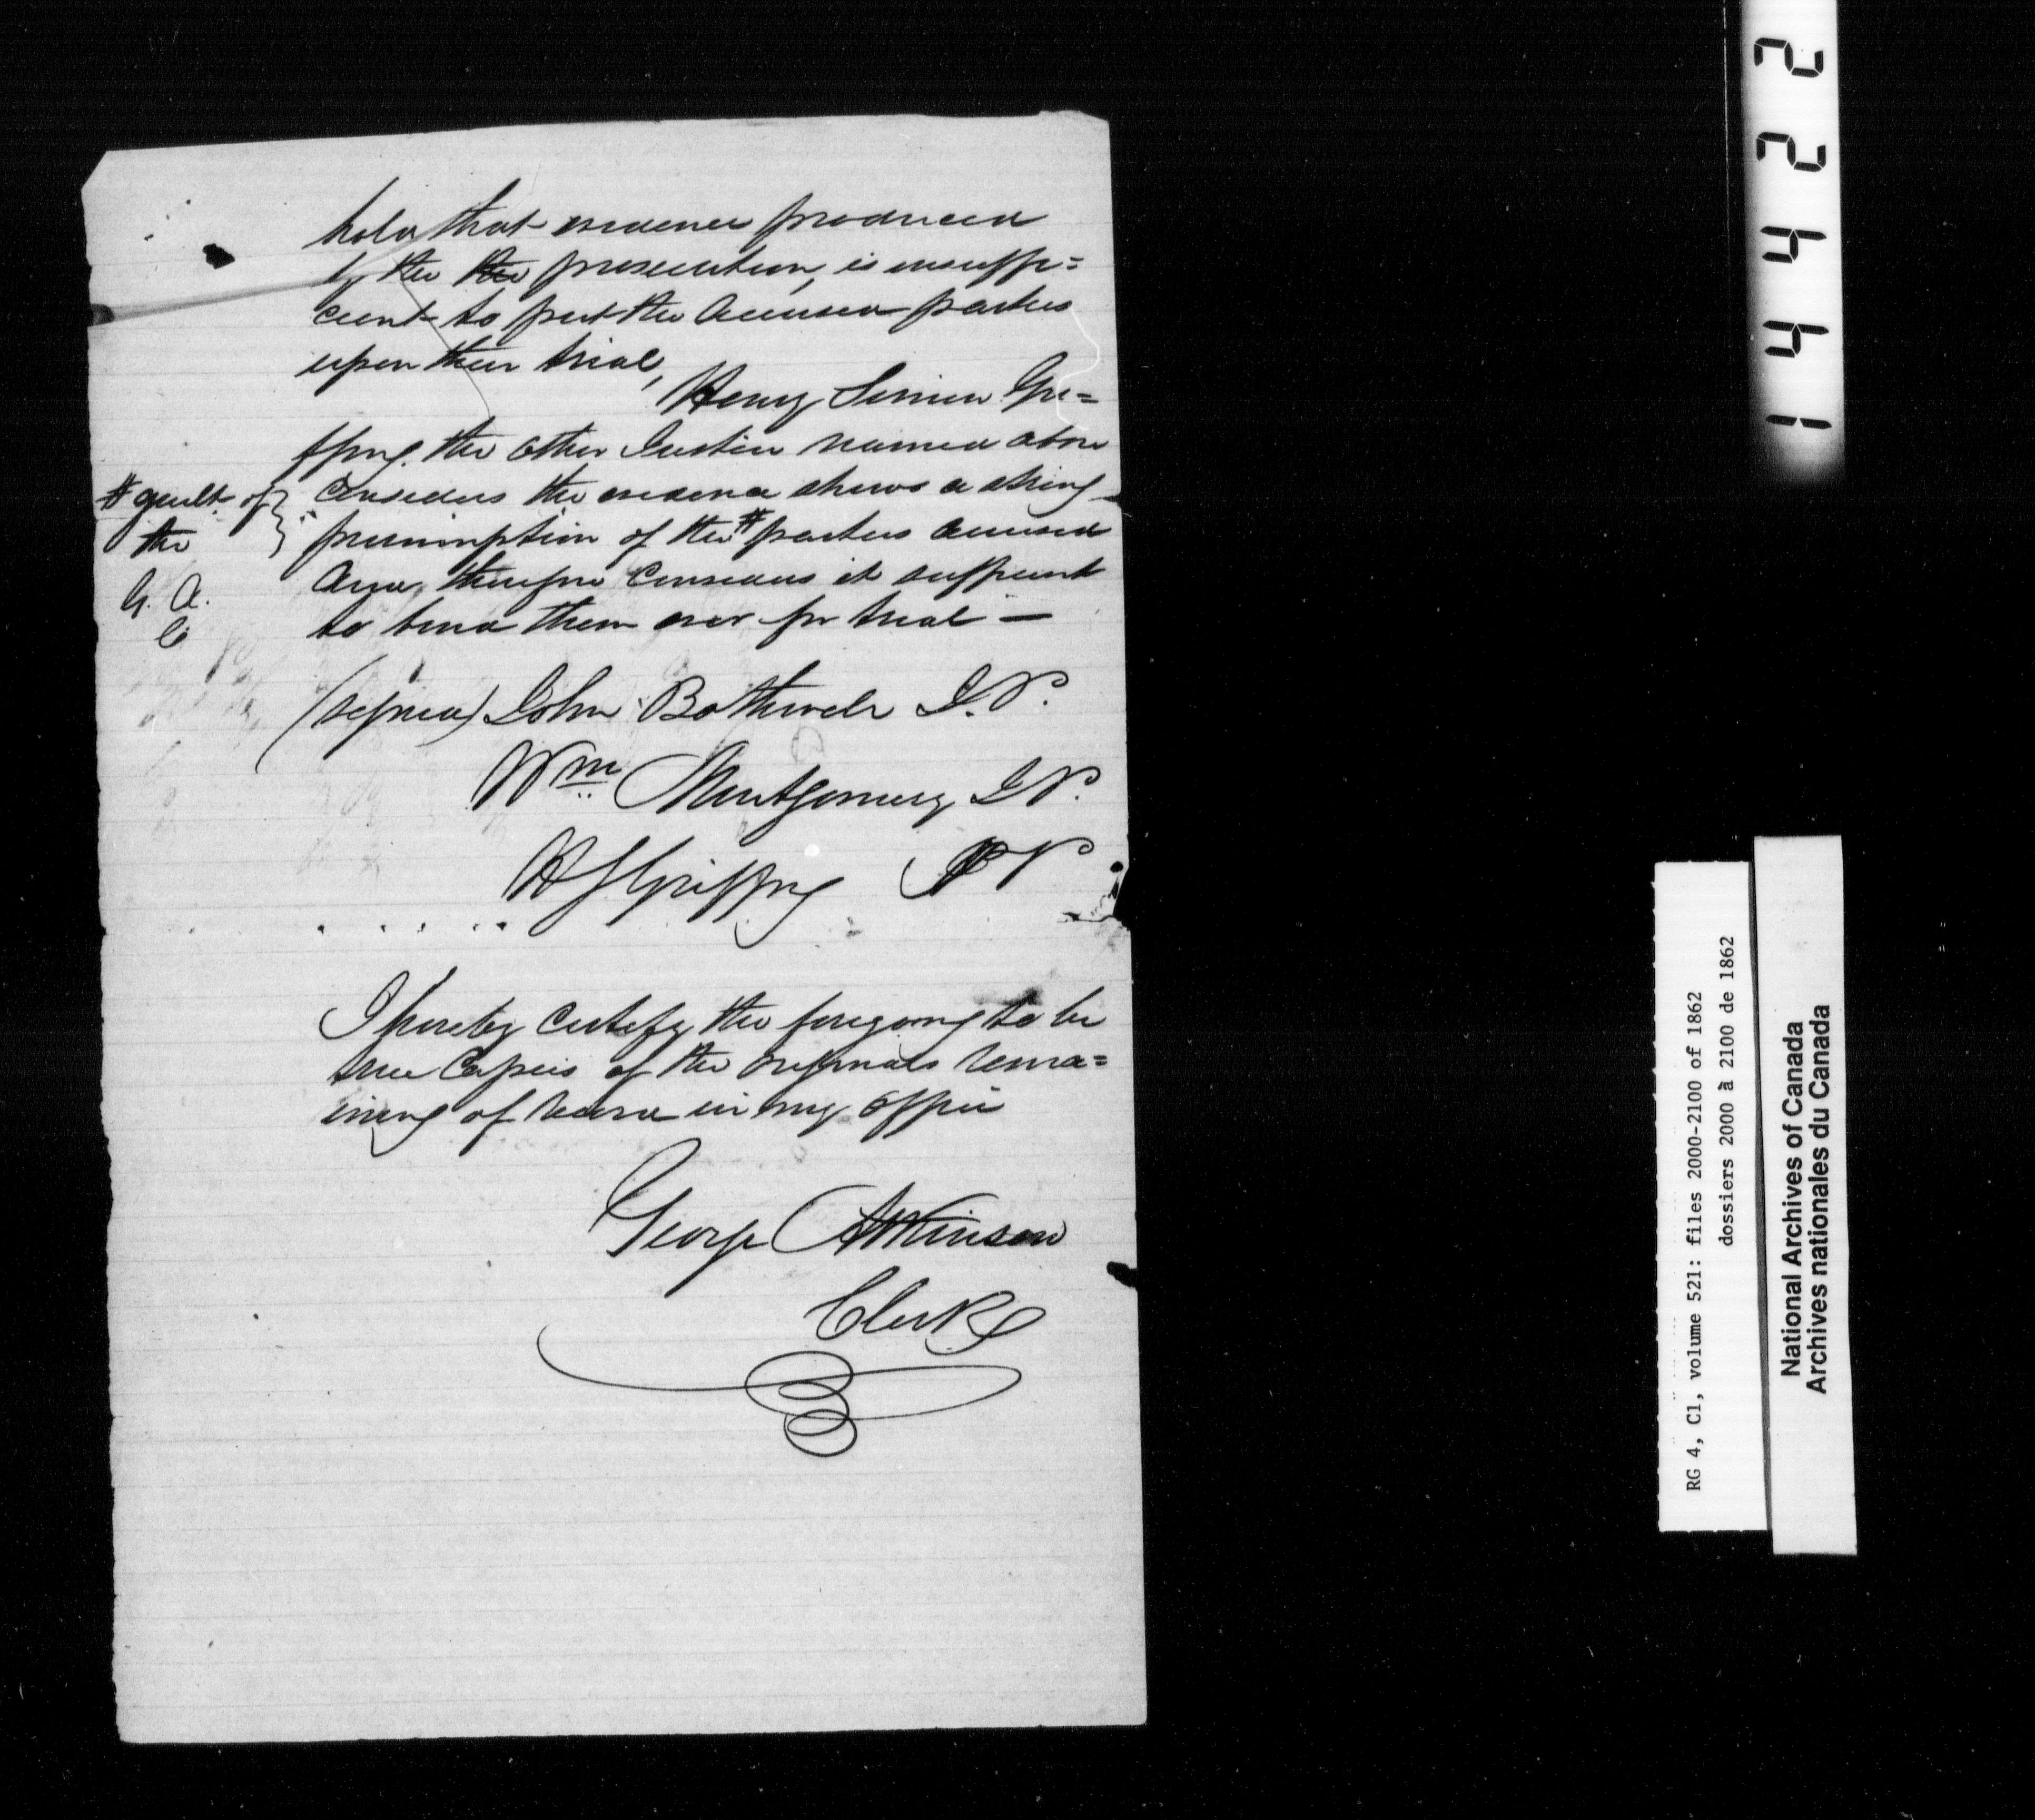 hold that evidence produced
by the the prosecution, is insuffi=
cient to put the accused parties
upon their trial,
Henry Simion Gri=
ffing. the other Justice named above
considers the evidence shows a strong
# guilt of } presumption of the # parties accused
the
and, therefore considers it sufficient
G. A.
C
to bind them over for trial —
(signed) John Bothwell J.P.
Wm Montgomery J P.
H S Griffing J P
I hereby certify the foregoing to be
true Copies of the originals rema=
ining of record in my office
George Atkinson
Clerk
14422
RG 4, C1, volume 521: files 2000-2100 of 1862
dossiers 2000 à 2100 de 1862
National Archives of Canada
Archives nationales du Canada